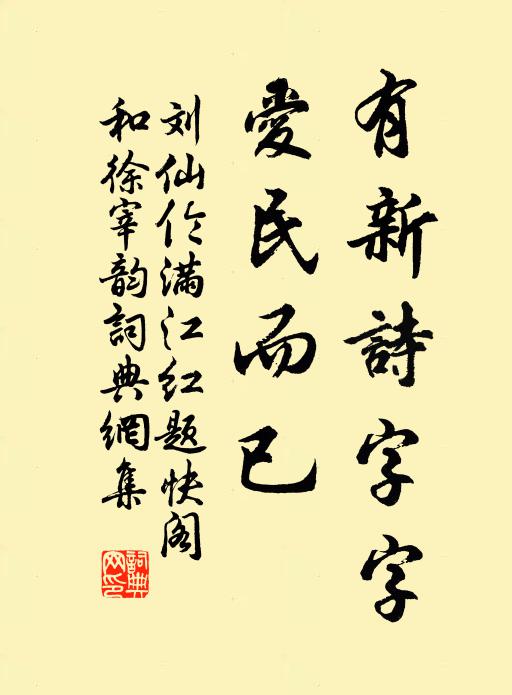 有新詩字字
愛民而已
刘仙伦满江红题快阁
和徐宰韵詞典網集
詞典网印